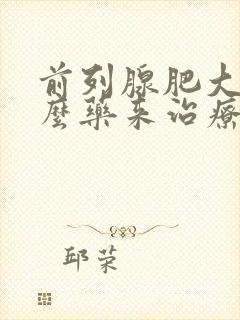 前列腺肥大
麼藥来治療
邱荣